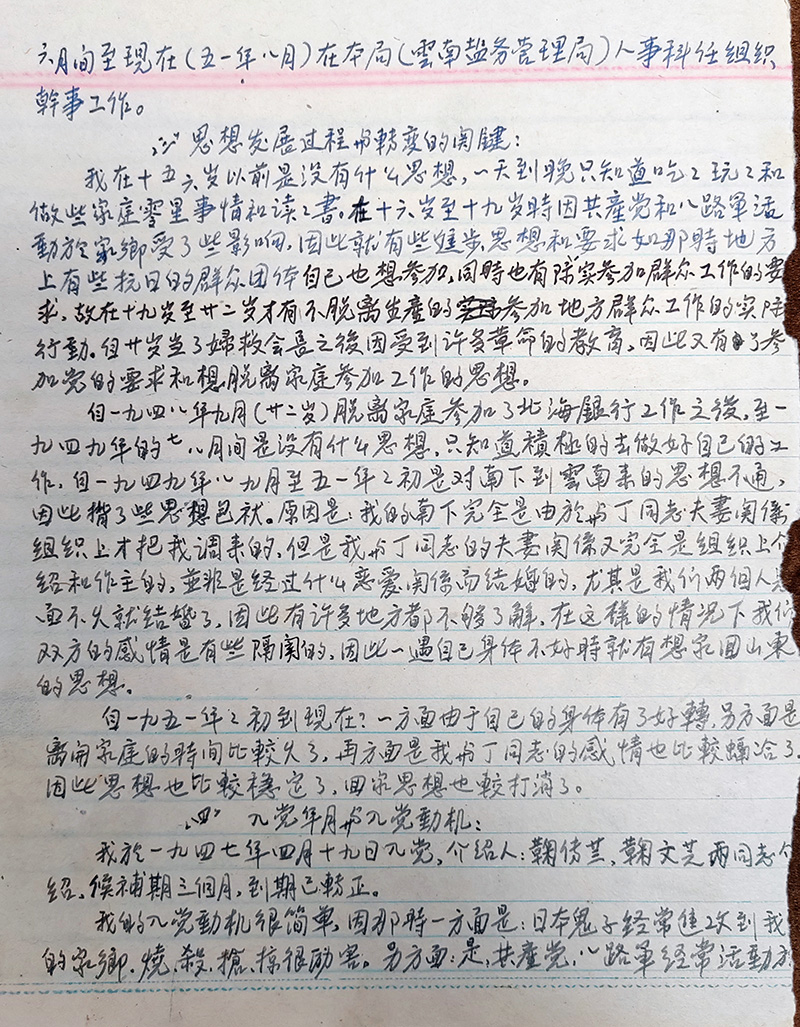 六月间至現在(五一年八月)在本局(雲南盐务管理局)人事科任组织
幹事工作。
三 思想发展过程与轉变的関鍵：
我在十五六岁以前是没有什么思想，一天到晚只知道吃〻玩〻和
做些家庭零星事情和读〻書。在十六岁至十九岁時因共產党和八路軍活
動於家鄉受了些影响，因此就有些進步思想和要求如那時地方
上有些抗日的群众团体自己也想参加，同時也有際实参加群众工作的要
求，故在十九岁至廿二岁才有不脱离生產的参加地方群众工作的实际
行動。但廿岁当了婦救会長之後因受到许多革命的教育，因此又有了参
加党的要求和想脱离家庭参加工作的思想。
自一九四八年九月(廿二岁)脱离家庭参加了北海銀行工作之後，至一
九四九年的七八月间是没有什么思想，只知道積極的去做好自己的工
作，自一九四九年八九月至五一年之初是对南下到雲南来的思想不通，
因此揹了些思想包袱。原因是：我的南下完全是由於与丁同志夫妻関係
组织上才把我调来的，但是我与丁同志的夫妻関係又完全是组织上介
绍和作主的，並非是经过什么恋爱関係而结婚的，尤其是我们两個人見
面不久就结婚了，因此有许多地方都不够了解，在这樣的情况下我们
双方的感情是有些隔阂的，因此一遇自己身体不好時就有想家回山東
的思想。
自一九五一年之初到現在？一方面由于自己的身体有了好轉，另方面是
离開家庭的時间比較久了，再方面是我与丁同志的感情也比較融洽了，
因此思想也比較穩定了，回家思想也較打消了。
四 入党年月与入党動机：
我於一九四七年四月十九日入党，介绍人：鞠传芸，鞠文芝两同志介
绍，候補期三個月，到期已轉正。
我的入党動机很简单，因那時一方面是：日本鬼子经常進攻到我
的家鄉，燒，殺，搶，掠很励害。另方面：是，共產党，八路軍经常活動於